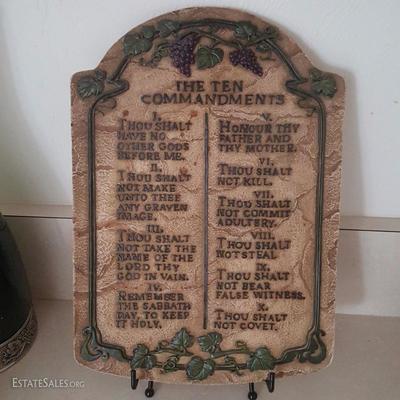 THE TEN
COMMANDMENTS
I.
THOU SHALT
HAVE NO
OTHER GODS
BEFORE ME.
II.
THOU SHALT
NOT MAKE
UNTO THEE
ANY GRAVEN
IMAGE.
III.
THOU SHALT
NOT TAKE THE
NAME OF THE
LORD THY
GOD IN VAIN.
IV.
REMEMBER
THE SABBATH
DAY, TO KEEP
IT HOLY.
V.
HONOUR THY
FATHER AND
THY MOTHER.
VI.
THOU SHALT
NOT KILL.
VII.
THOU SHALT
NOT COMMIT
ADULTERY.
VIII.
THOU SHALT
NOT STEAL
IX.
THOU SHALT
NOT BEAR
FALSE WITNESS.
X.
THOU SHALT
NOT COVET.
ESTATESALES.ORG